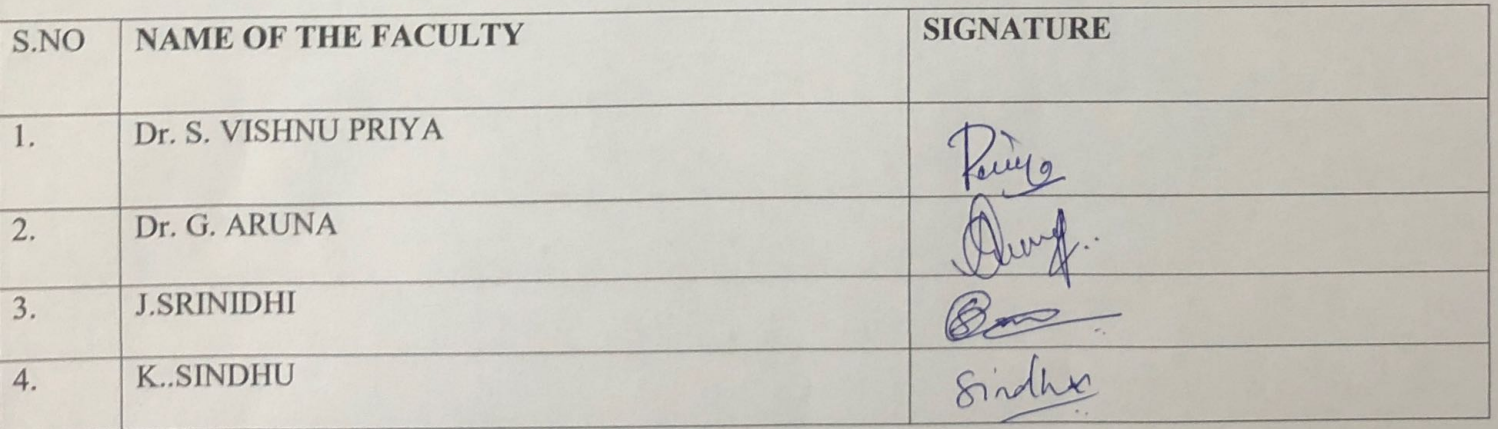 S.NO NAME OF THE FACULTY SIGNATURE
1. Dr. S. VISHNU PRIYA Priya
2. Dr. G. ARUNA
3. J.SRINIDHI
4. K..SINDHU Sindhu